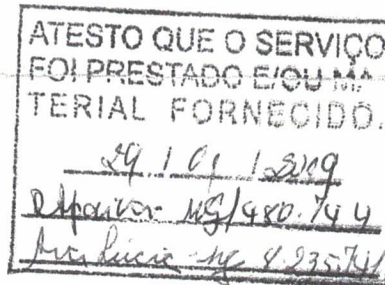 ATESTO QUE O SERVIÇO
FOI PRESTADO E/OU MA
TERIAL FORNECIDO.
29 / 01 / 2019
MG/480.744
Lúcia MG 4.235.741